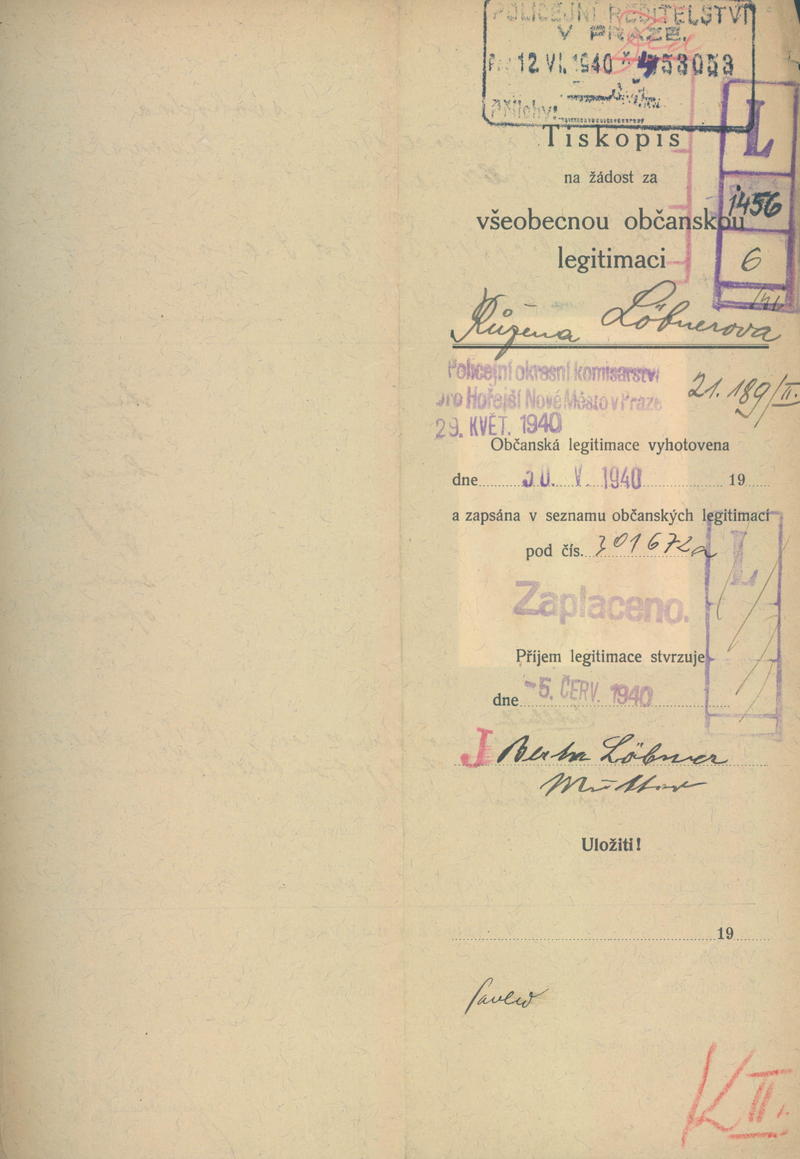 POLICEJNÍ ŘEDITELSTVÍ
V PRAZE.
12. VI. 1940 453053
Přílohy:
Tiskopis
L
na žádost za
1456
všeobecnou občanskou
legitimaci
6
Růžena Löbnerova
Policejní okresní komisařství
pro Hořejší Nové Město v Praze
21.189/II.
29. KVĚT. 1940
Občanská legitimace vyhotovena
dne 30. V. 1940 19
a zapsána v seznamu občanských legitimací
pod čís. 301672a
L
Zaplaceno.
Příjem legitimace stvrzuje
dne -5. ČERV. 1940
J Berta Löbner
Mutter
Uložiti!
19
K II.